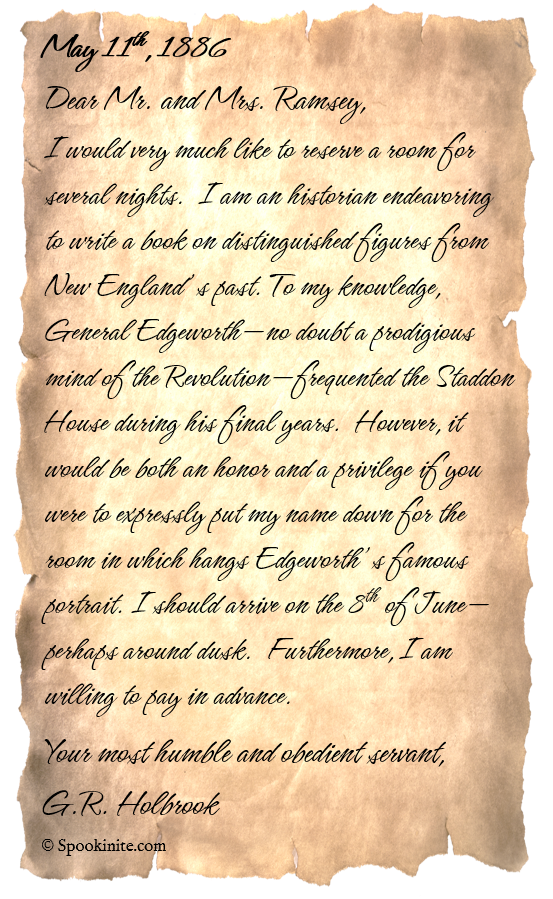 May 11th, 1886
Dear Mr. and Mrs. Ramsey,
I would very much like to reserve a room for
several nights.  I am an historian endeavoring
to write a book on distinguished figures from
New England's past. To my knowledge,
General Edgeworth—no doubt a prodigious
mind of the Revolution—frequented the Staddon
House during his final years.  However, it
would be both an honor and a privilege if you
were to expressly put my name down for the
room in which hangs Edgeworth's famous
portrait. I should arrive on the 8th of June—
perhaps around dusk.  Furthermore, I am
willing to pay in advance.
Your most humble and obedient servant,
G.R. Holbrook
© Spookinite.com